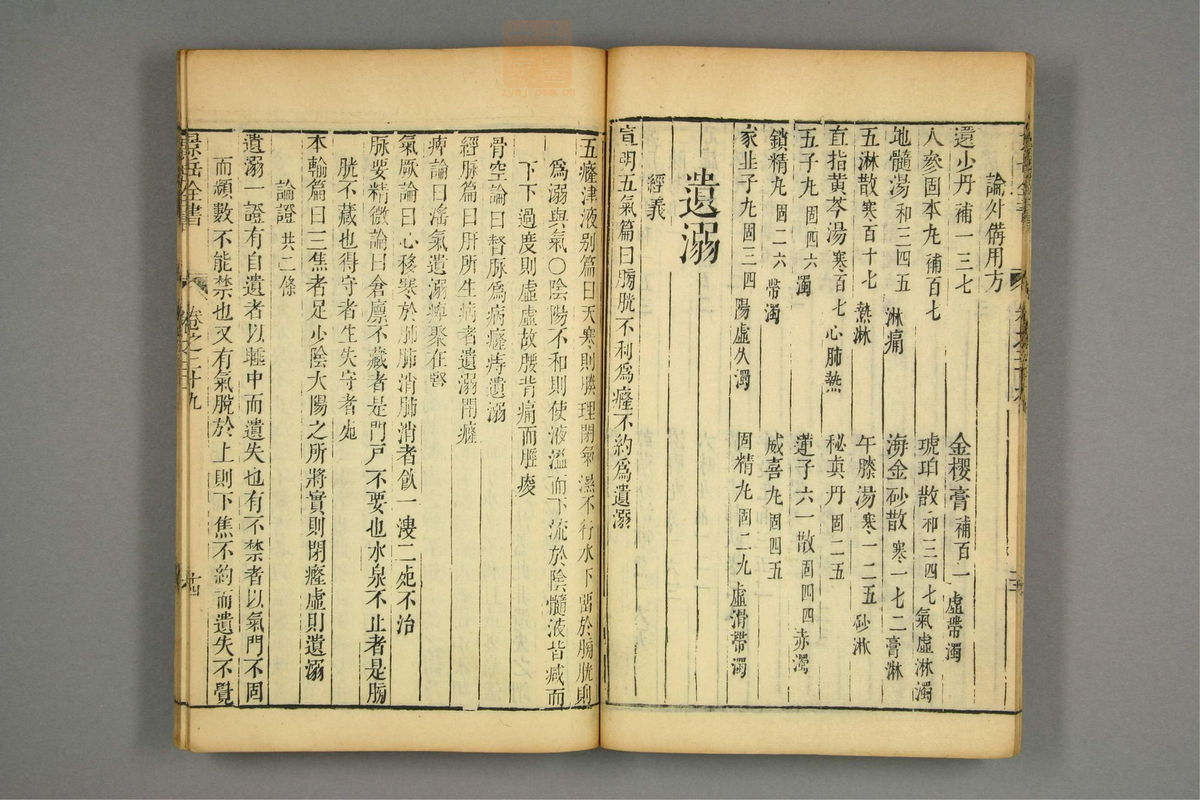 論外備用方
還少丹 補一三七
金櫻膏 補百一 虛帶濁
人參固本丸 補百七
琥珀散 和三四七 氣虛淋濁
地髓湯 和三四五 淋痛
海金砂散 寒一七二 膏淋
五淋散 寒百十七 熱淋
午膝湯 寒一二五 砂淋
直指黃芩湯 寒百七 心肺熱
秘眞丹 固二五
五子丸 固四六 濁
蓮子六一散 固四四 赤濁
鎖精丸 固二六 帶濁
威喜丸 固四五
家韭子丸 固三四 陽虛久濁
固精丸 固二九 虛滑帶濁
遺溺
經義
宣明五氣篇曰膀胱不利爲癃不約爲遺溺
五癃津液别篇曰天寒則腠理閉氣濕不行水下畱於膀胱則
爲溺與氣〇陰陽不和則使液溢而下流於陰髓液皆减而
下下過度則虛虛故腰背痛而脛痠
骨空論曰督脈爲病癃痔遺溺
經脈篇曰肝所生病者遺溺閉癃
痺論曰滛氣遺溺痺聚在腎
氣厥論曰心移寒於肺肺消肺消者飲一溲二死不治
脉要精微論曰倉廪不藏者是門戸不要也水泉不止者是膀
胱不藏也得守者生失守者死
本輸篇曰三焦者足少陰太陽之所將實則閉癃虛則遺溺
論證 共二條
遺溺一證有自遺者以睡中而遺失也有不禁者以氣門不固
而頻數不能禁也又有氣脫於上則下焦不約而遺失不覺
景岳全書
卷之二十九
十四